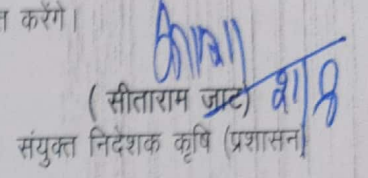 त करेंगे।
( सीताराम जाट)
संयुक्त निदेशक कृषि (प्रशासन)